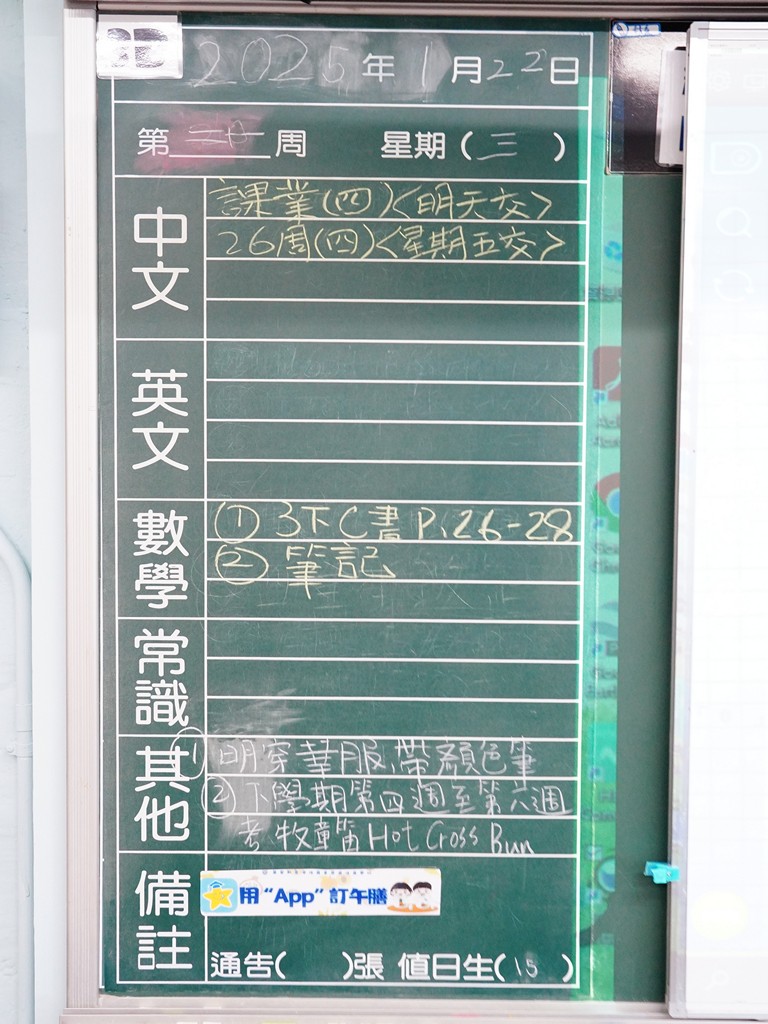 2025年1月22日
第二十周 星期(三)
中文
課業(四)<明天交>
26周(四)<星期五交>
英文
數學
① 3下C書 P.26-28
② 筆記
常識
其他
① 明穿華服,帶顏色筆
② 下學期第四週至第六週
考牧童笛 Hot Cross Bun
備註
用"App"訂午膳
通告( )張 值日生(15)